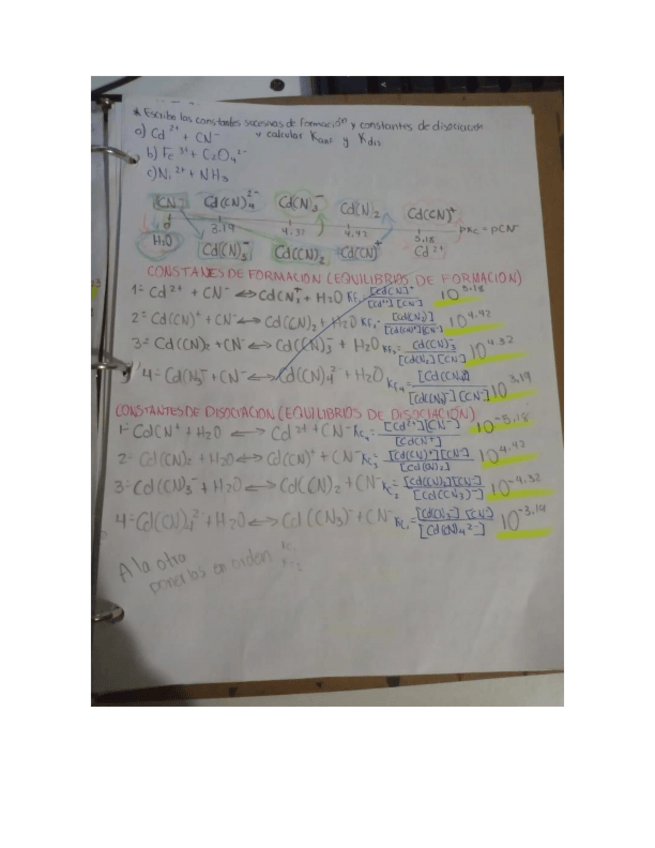 * Escribe las constantes sucesivas de formación y constantes de disociación
a) Cd²⁺ + CN⁻ y calcular K y Kdis
b) Fe³⁺ + C₂O₄²⁻
c) Ni²⁺ + NH₃
CN⁻ Cd(CN)₄²⁻ Cd(CN)₃⁻ Cd(CN)₂ Cd(CN)⁺
3.19 4.32 4.42 5.18 pKc = pCN
H₂O Cd(CN)₃⁻ Cd(CN)₂ Cd(CN)⁺ Cd²⁺
CONSTANES DE FORMACIÓN (EQUILIBRIOS DE FORMACION)
1= Cd²⁺ + CN⁻ ⇔ Cd(CN)⁺ + H₂O KF₁= [Cd(CN)⁺]/[Cd²⁺][CN⁻] 10^5.18
2= Cd(CN)⁺ + CN⁻ ⇔ Cd(CN)₂ + H₂O KF₂= [Cd(CN)₂]/[Cd(CN)⁺][CN⁻] 10^4.42
3= Cd(CN)₂ + CN⁻ ⇔ Cd(CN)₃⁻ + H₂O KF₃= Cd(CN)₃⁻/[Cd(CN)₂][CN⁻] 10^4.32
4= Cd(N)₃⁻ + CN⁻ ⇔ Cd(CN)₄²⁻ + H₂O KF₄= 10^3.19
CONSTANTES DE DISOCIACION (EQUILIBRIOS DE DISOCIACIÓN)
1= Cd(CN⁺ + H₂O ⇔ Cd²⁺ + CN⁻ Kc₄= [Cd²⁺][CN⁻]/[CdCN⁺] 10^-5.18
2= Cd(CN)₂ + H₂O ⇔ Cd(CN)⁺ + CN⁻ Kc₃= [Cd(CN)⁺][CN⁻]/[Cd(CN)₂] 10^4.42
3= Cd(CN)₃⁻ + H₂O ⇔ Cd(CN)₂ + CN⁻ Kc₂= [Cd(CN)₂][CN⁻]/[Cd(CN)₃⁻] 10^-4.32
4= Cd(CN)₄²⁻ + H₂O ⇔ Cd(CN₃)⁻ + CN⁻ Kc₁= [Cd(CN)₃⁻][CN⁻]/[Cd(CN)₄²⁻] 10^-3.19
A la otra Kc₁
ponerlos en orden Kc₂